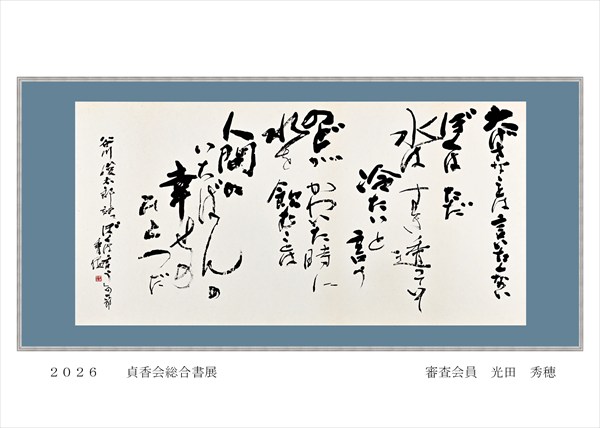 大げさなことは言いたくない
ぼくはただ
水はすき透っていて
冷たいと言う
のどがかわいた時に
水を飲むことは
人間の
いちばんの
幸せの
ひとつだ
谷川俊太郎詩 ぼくは言う
２０２６　貞香会総合書展
審査会員　光田　秀穂